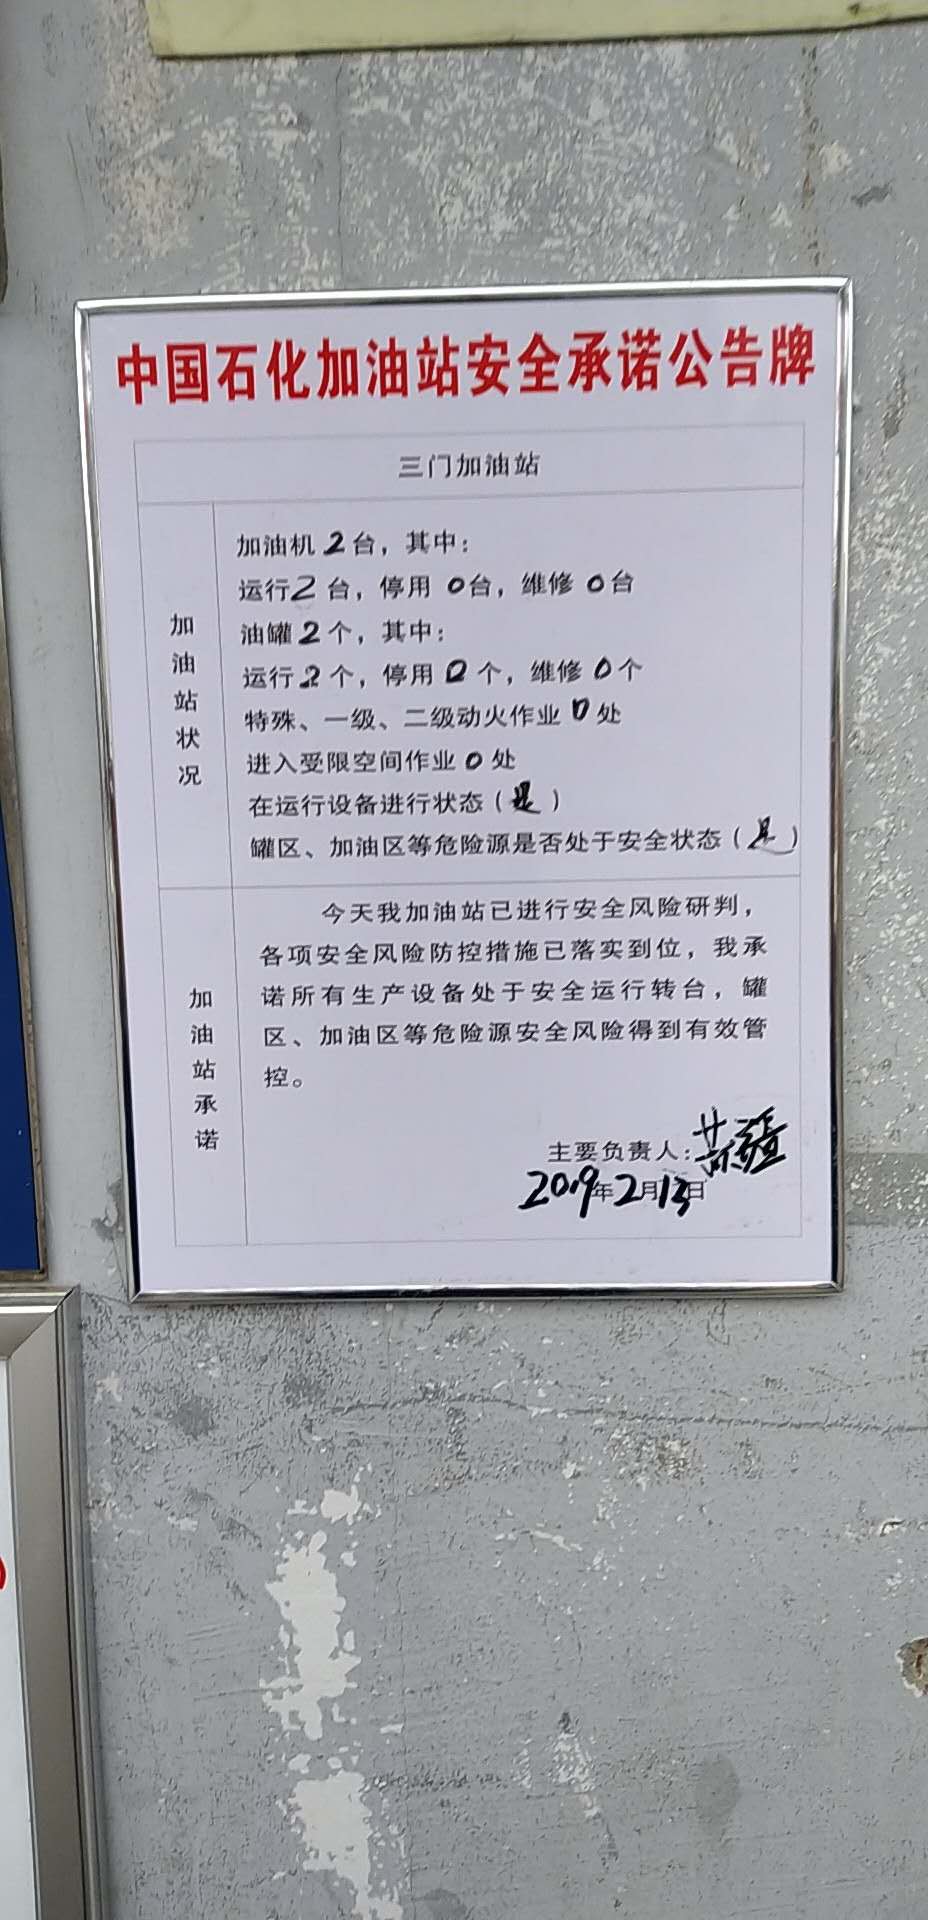 中国石化加油站安全承诺公告牌
三门加油站
加油站状况
加油机2台，其中：
运行2台，停用0台，维修0台
油罐2个，其中：
运行2个，停用0个，维修0个
特殊、一级、二级动火作业0处
进入受限空间作业0处
在运行设备进行状态（是）
罐区、加油区等危险源是否处于安全状态（是）
加油站承诺
今天我加油站已进行安全风险研判，
各项安全风险防控措施已落实到位，我承
诺所有生产设备处于安全运行转台，罐
区、加油区等危险源安全风险得到有效管
控。
主要负责人：
2019年2月13日